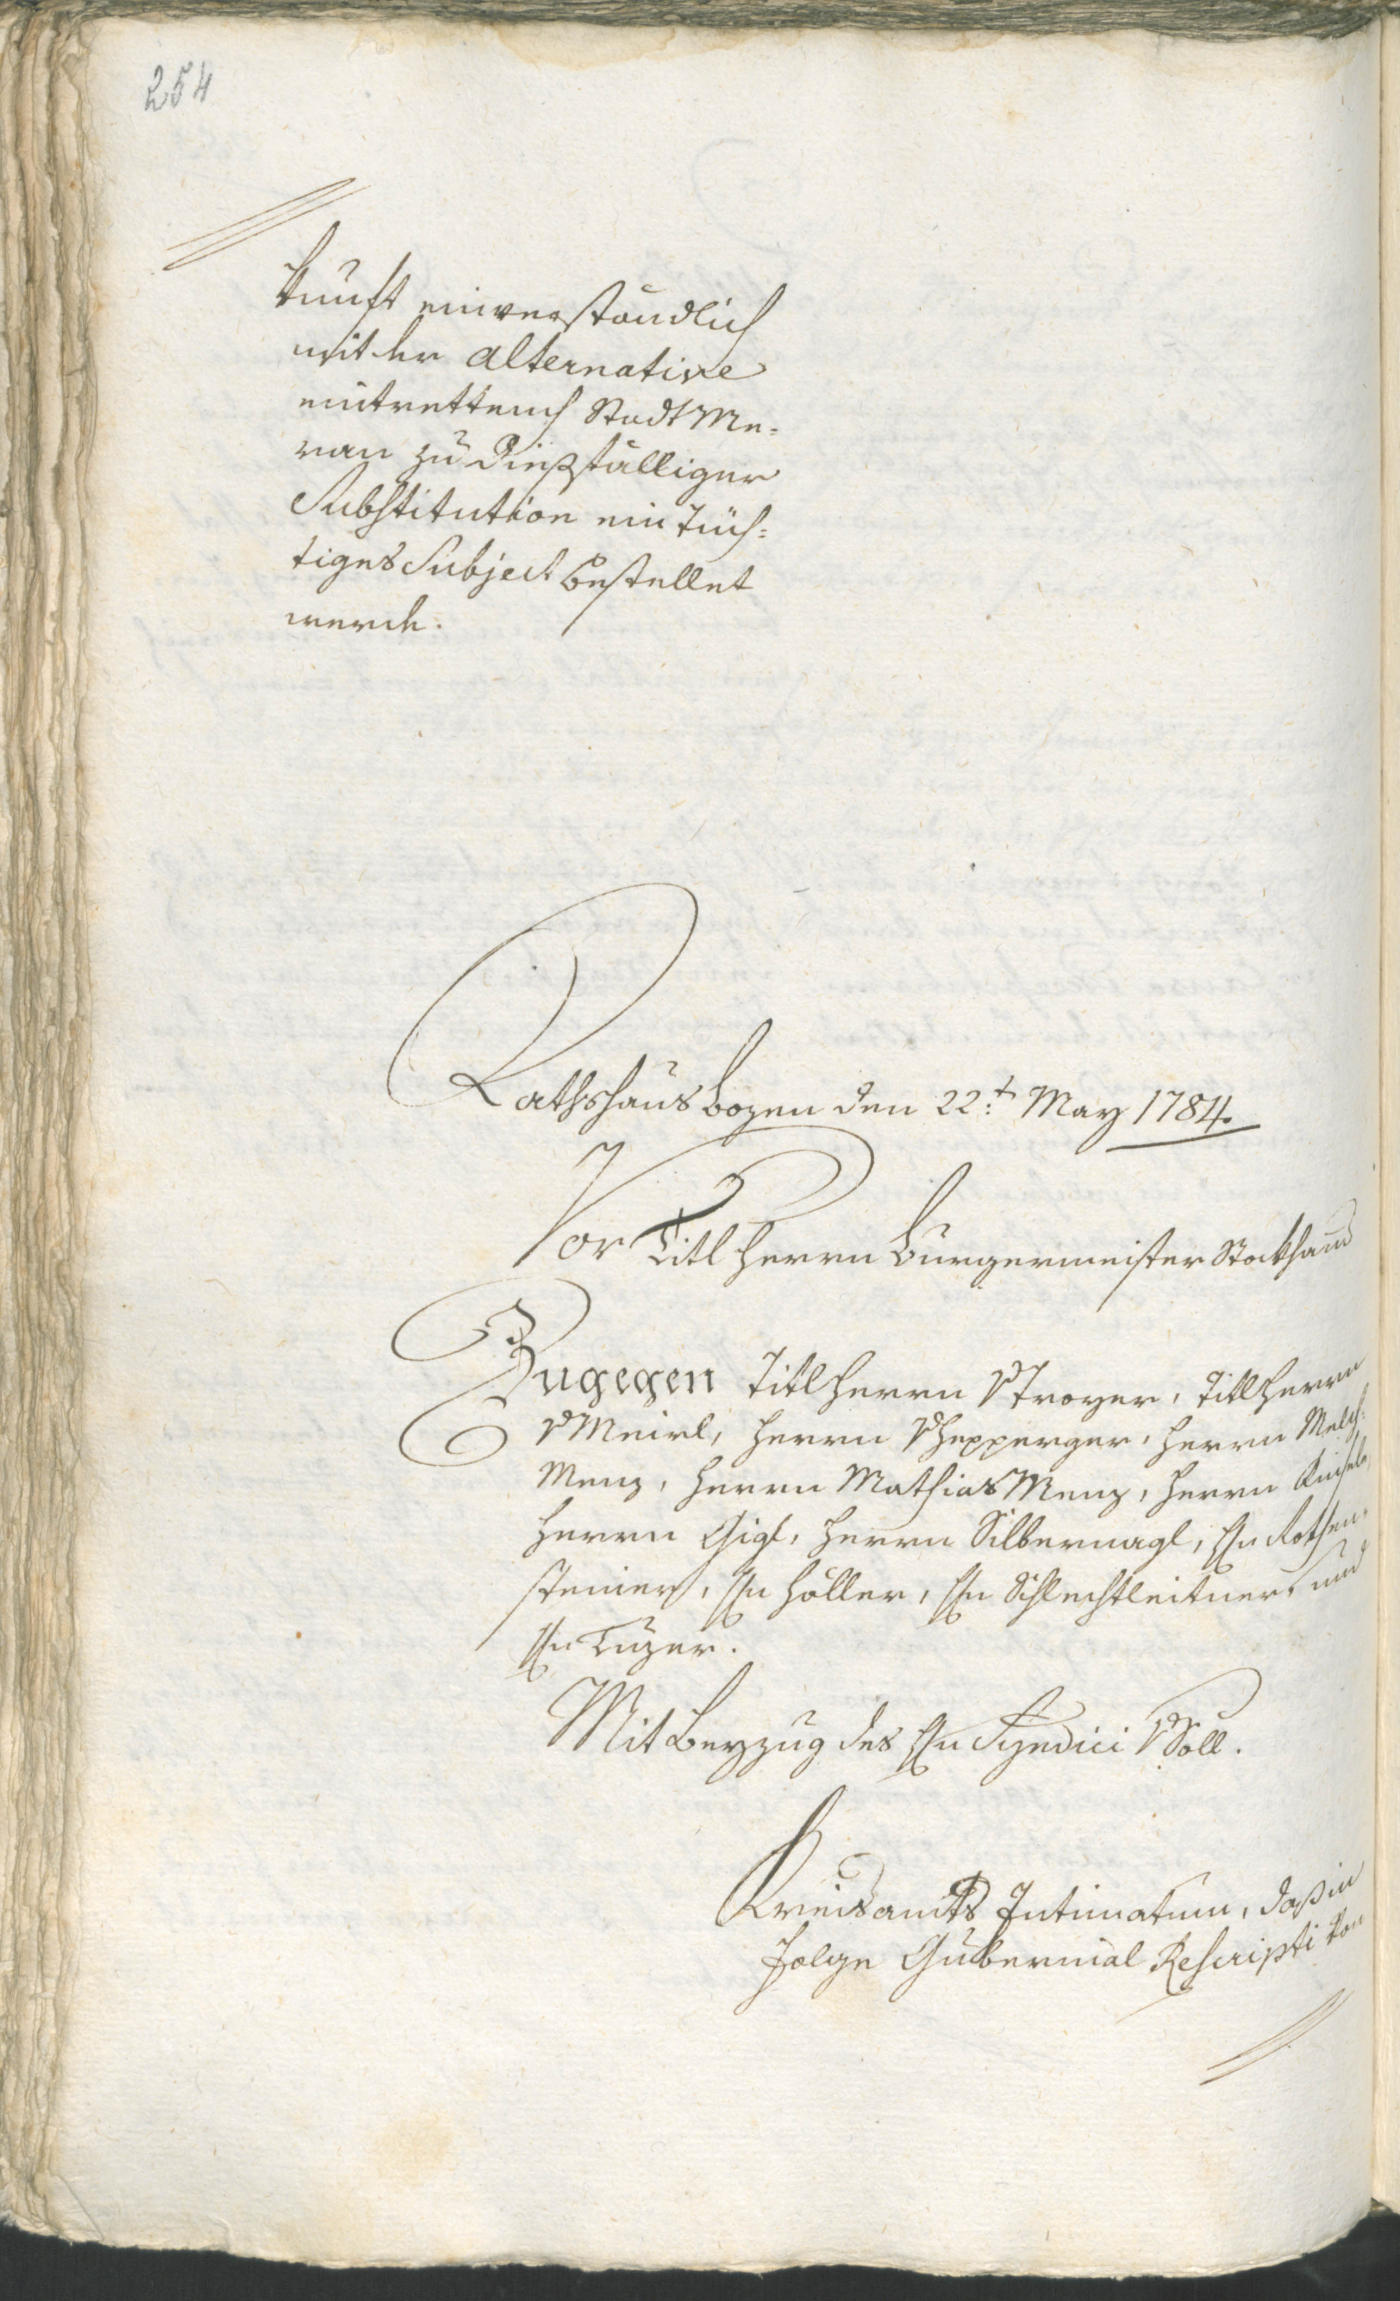 254
kunft einverständlich
mit der alternative
eintrettend Stadt Me-
ran zu dießfälliger
Substitution ein tüch-
tiges Subject bestellet
werde.
Rathshaus Bozen den 22.t May 1784.
Vor Titl Herrn Burgermeister Stockhamr
Zugegen Titl Herrn v Troyer, Titl Herrn
v Meirl, Herrn v Hepperger, Herrn Melch:
Menz, Herrn Mathias Menz, Herrn
Herrn Gigl, Herrn Silbernagl, Hn Rothen-
steiner, Hn Höller, Hn Schlechtleitner, und
Hn Tuzer.
Mit Beyzug des Hn Syndici v Söll.
Kreisamts Intimatum, daß in
Folge Gubernial Rescripti von